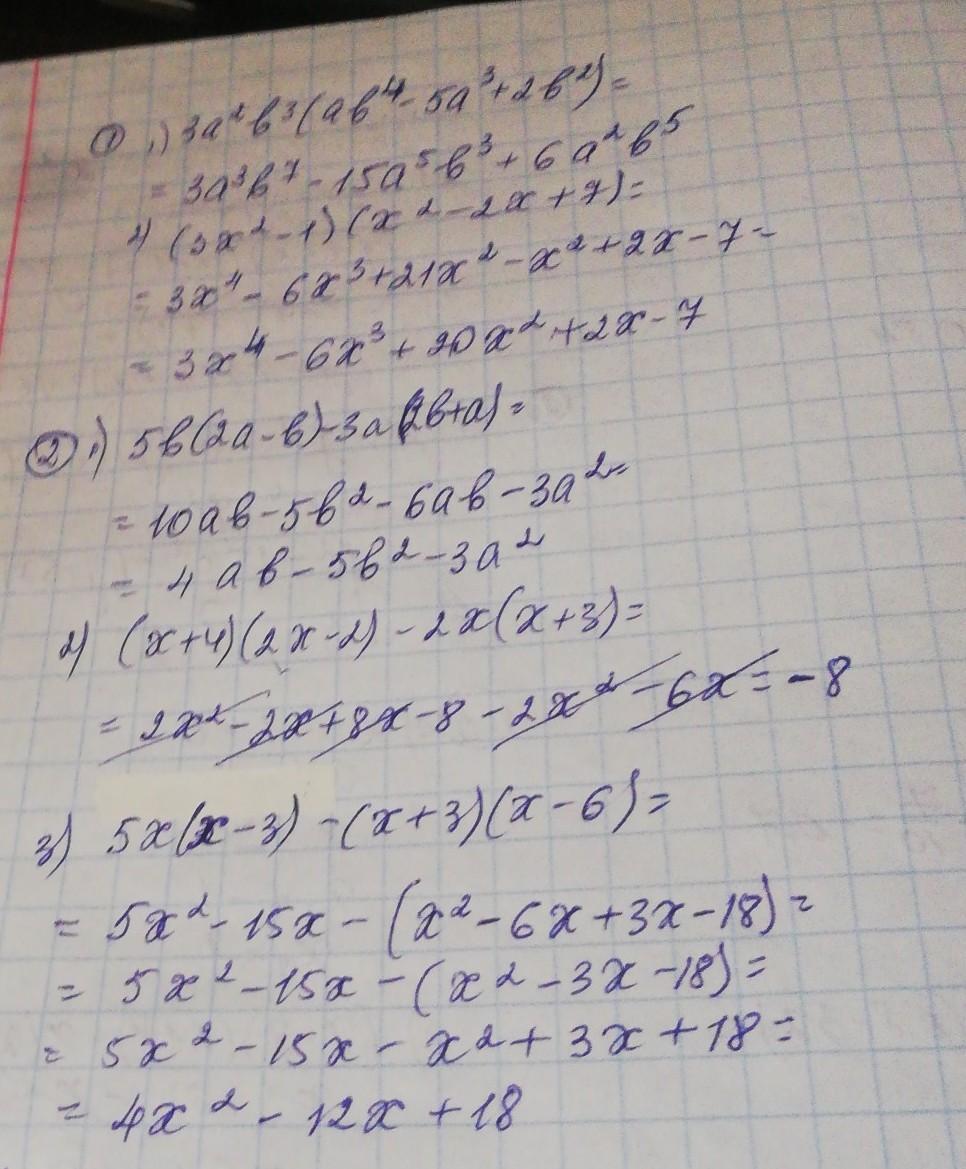 ① 1) 3a²b³(ab⁴-5a³+2b²)=
= 3a³b⁷-15a⁵b³+6a²b⁵
2) (3x²-1)(x²-2x+7)=
= 3x⁴-6x³+21x²-x²+2x-7=
= 3x⁴-6x³+20x²+2x-7
② 1) 5b(2a-b)-3a(2b+a)=
= 10ab-5b²-6ab-3a²=
= 4ab-5b²-3a²
2) (x+4)(2x-2)-2x(x+3)=
= 2x²-2x+8x-8-2x²-6x=-8
3) 5x(x-3)-(x+3)(x-6)=
= 5x²-15x-(x²-6x+3x-18)=
= 5x²-15x-(x²-3x-18)=
= 5x²-15x-x²+3x+18=
= 4x²-12x+18